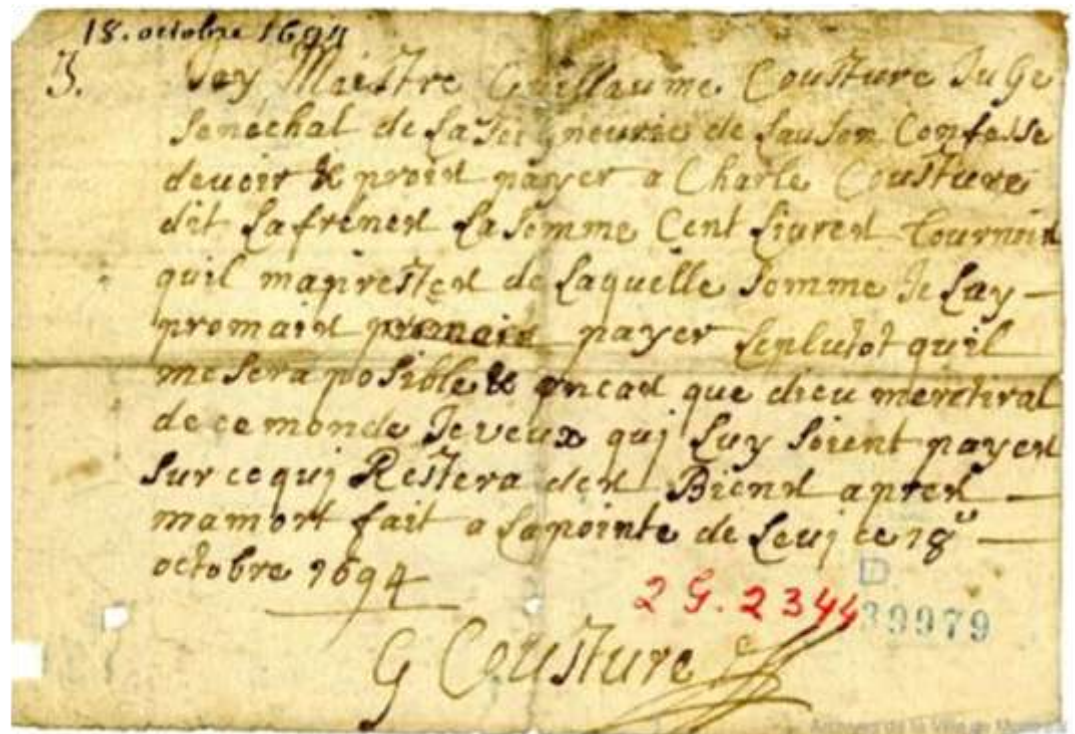 18. octobre 1694
3. Jey Maistre Guillaume Cousture Juge
Senechal de La Seigneurie de Lauson Confesse
devoir & proist payer a Charle Cousture
dit Lafrenes La Somme Cent Livres Tournois
quil maprestes de Laquelle Somme Je Lay —
promais promais payer Leplutot quil
me Sera posible & encas que dieu mertiral
de ce monde Je veux quj Luy Soient payes
Sur ce quj Restera des Biens apres —
mamort fait a Lapointe de Levj ce 18u —
octobre 1694
2 G. 2344
D
39979
G Cousture
Archives de la Ville de Montréal